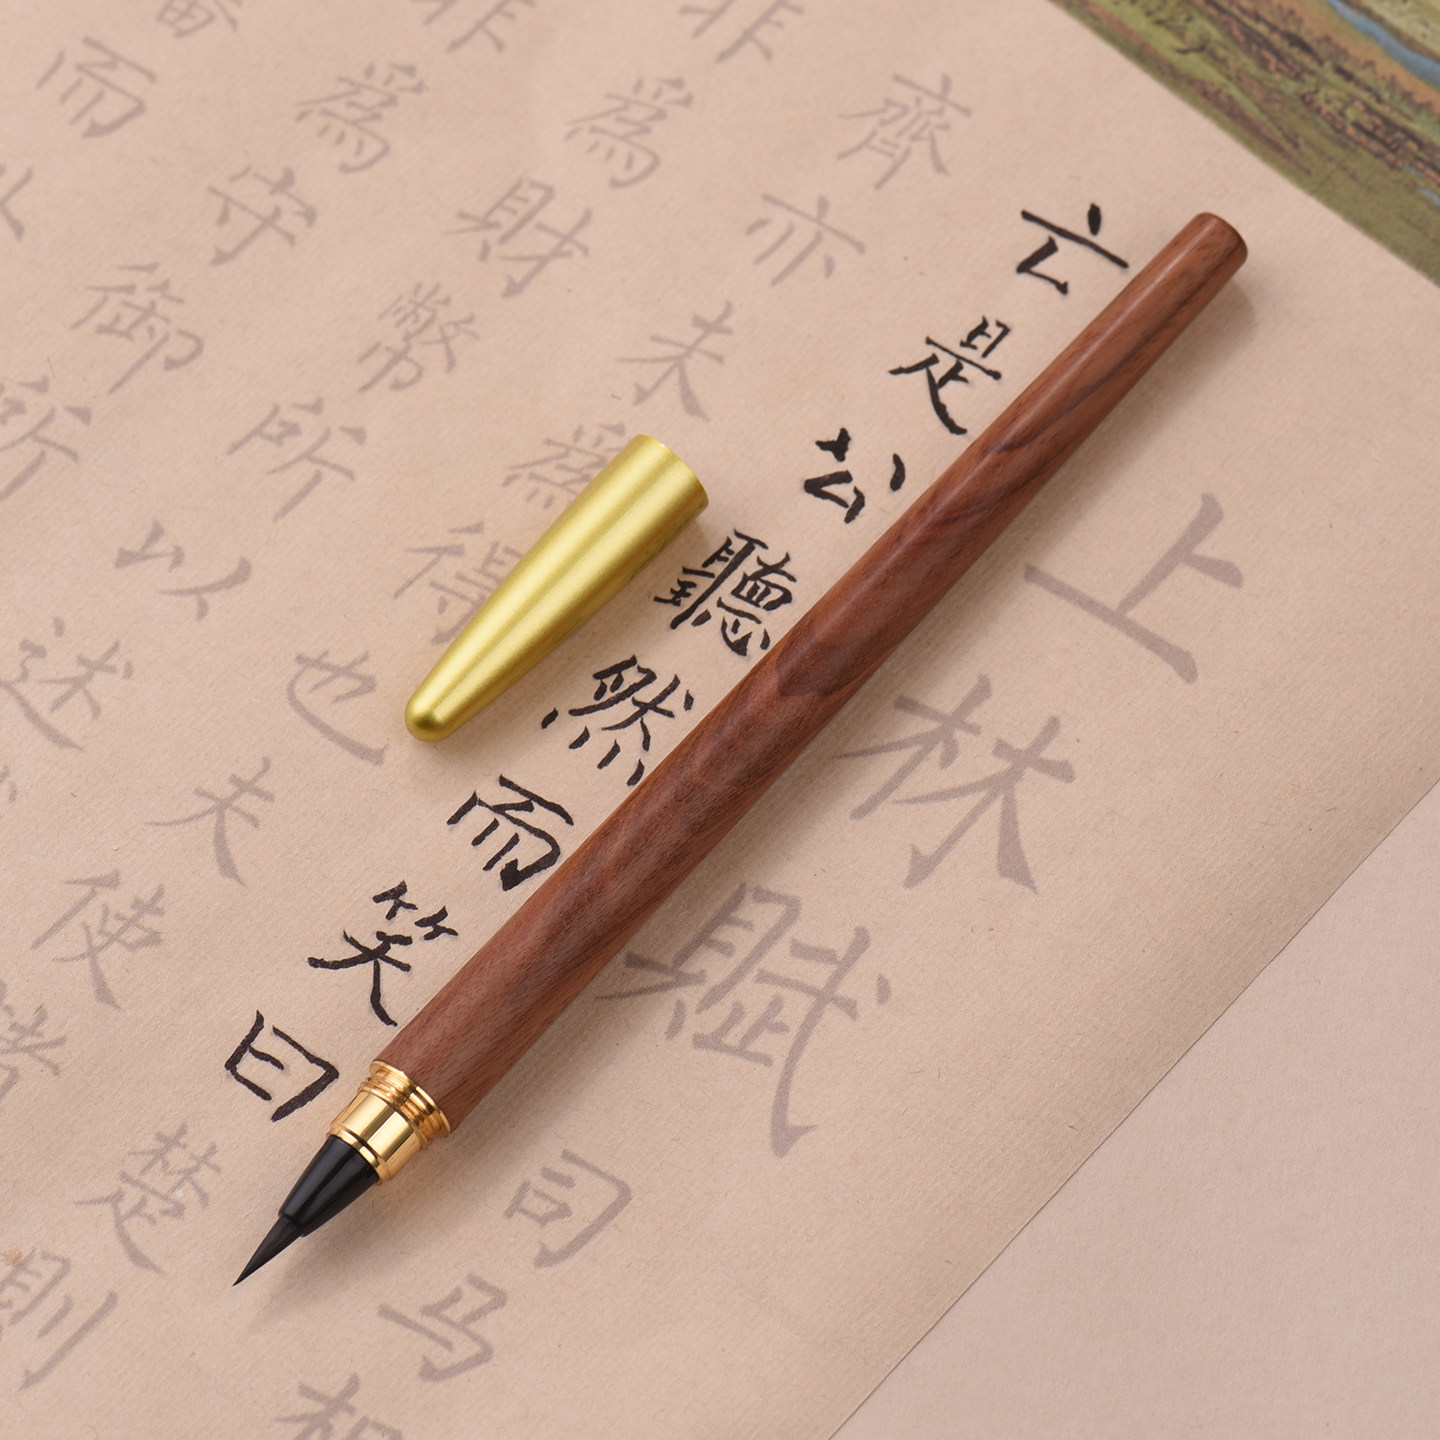 上林賦司马相
亡是公聽然而笑曰楚則
齊亦未爲得也夫使
非爲財幣所以述
非爲守御所
而